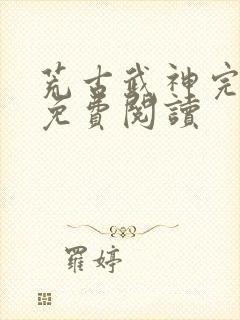 荒古武神完
免費閱讀
羅婷